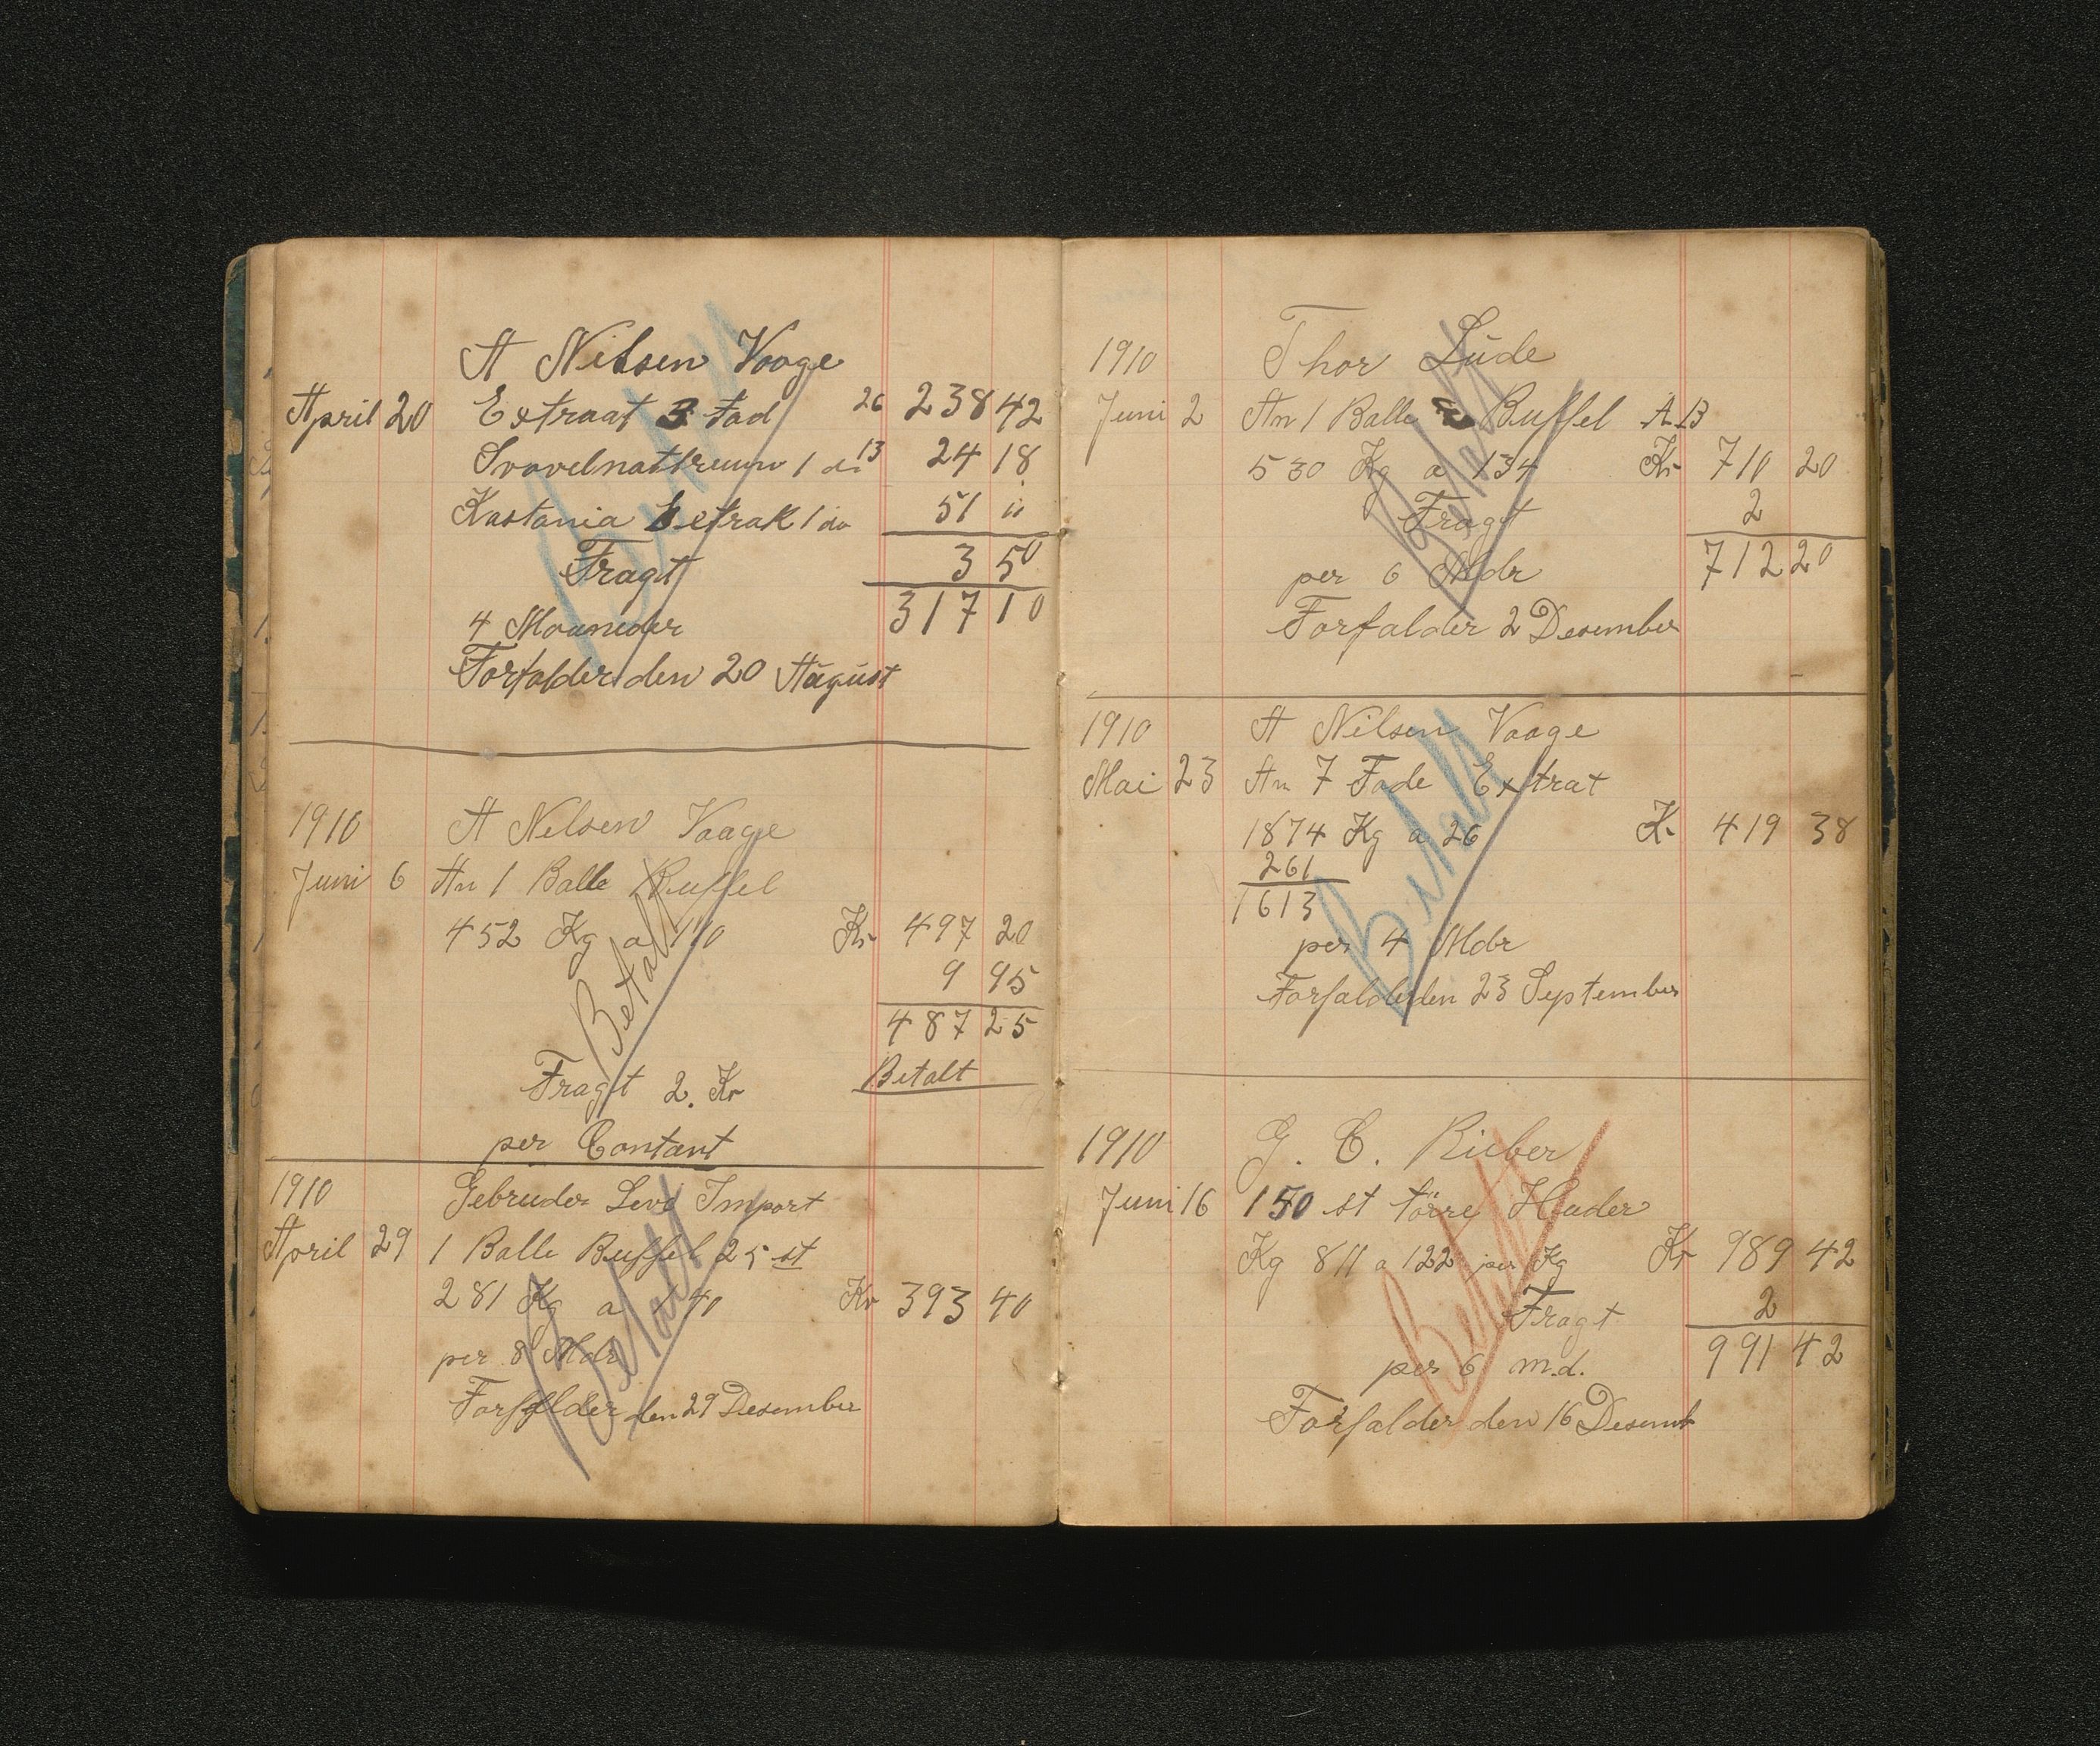 A Nilsen Vaage
April 20 Extraat 3 Fad 26 238 42
Svovelnattreum 1 do 13 24 18
Kastania Extrak 1 do 51 "
Fragt 3 50
317 10
4 Mouneder
Forfalder den 20 August
Betalt
1910 A Nilsen Vaage
Juni 6 An 1 Balle Buffel
452 Kg a 110 Kr 497 20
9 95
487 25
Fragt 2. Kr Betalt
per Contant
Betalt
1910 Gebruder Levi Import
April 29 1 Balle Buffel 25 st
281 Kg a 140 Kr 393 40
per 8 Mdr
Forfalder den 29 Desember
Betalt
1910 Thor Lude
Juni 2 An 1 Balle Buffel A 13
530 Kg a 134 Kr 710 20
Fragt 2
712 20
per 6 Mdr
Forfalder 2 Desember
Betalt
1910 A Nilsen Vaage
Mai 23 An 7 Fade Extrat
1874 Kg a 26 Kr 419 38
261
1613
per 4 Mdr
Forfalder den 23 September
Betalt
1910 G. C. Rieber
Juni 16 150 st törre Huder
Kg 811 a 122 per Kg Kr 989 42
Fragt 2
991 42
per 6 m.d.
Forfalder den 16 Desemb
Betalt